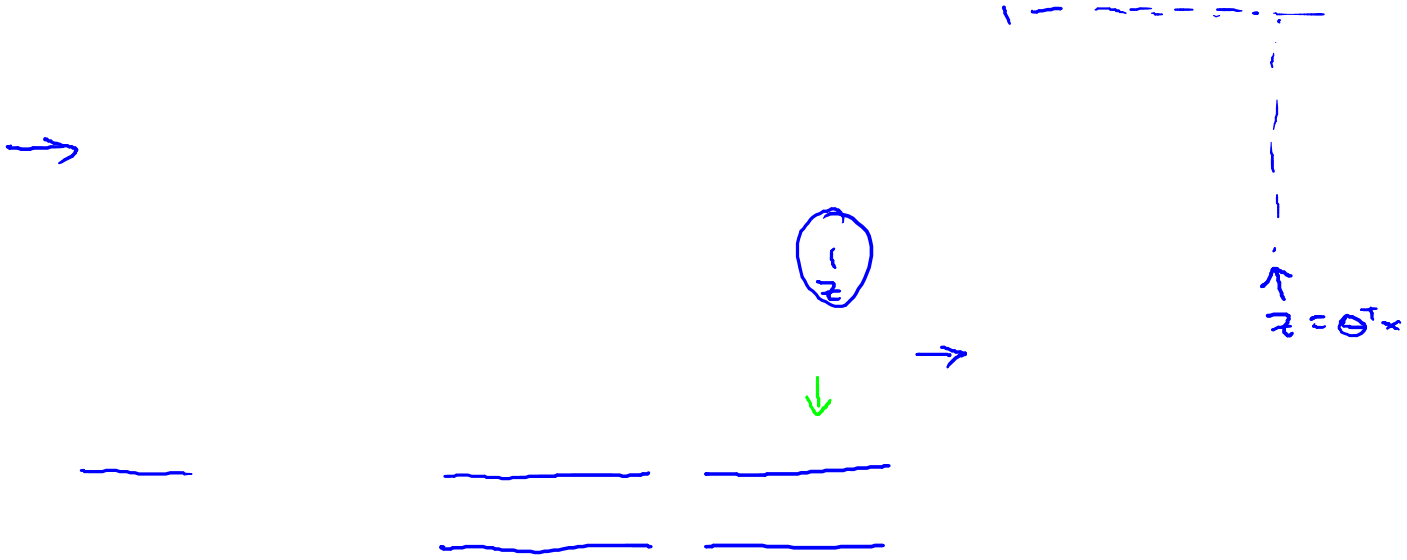 1
z
z = θᵀx